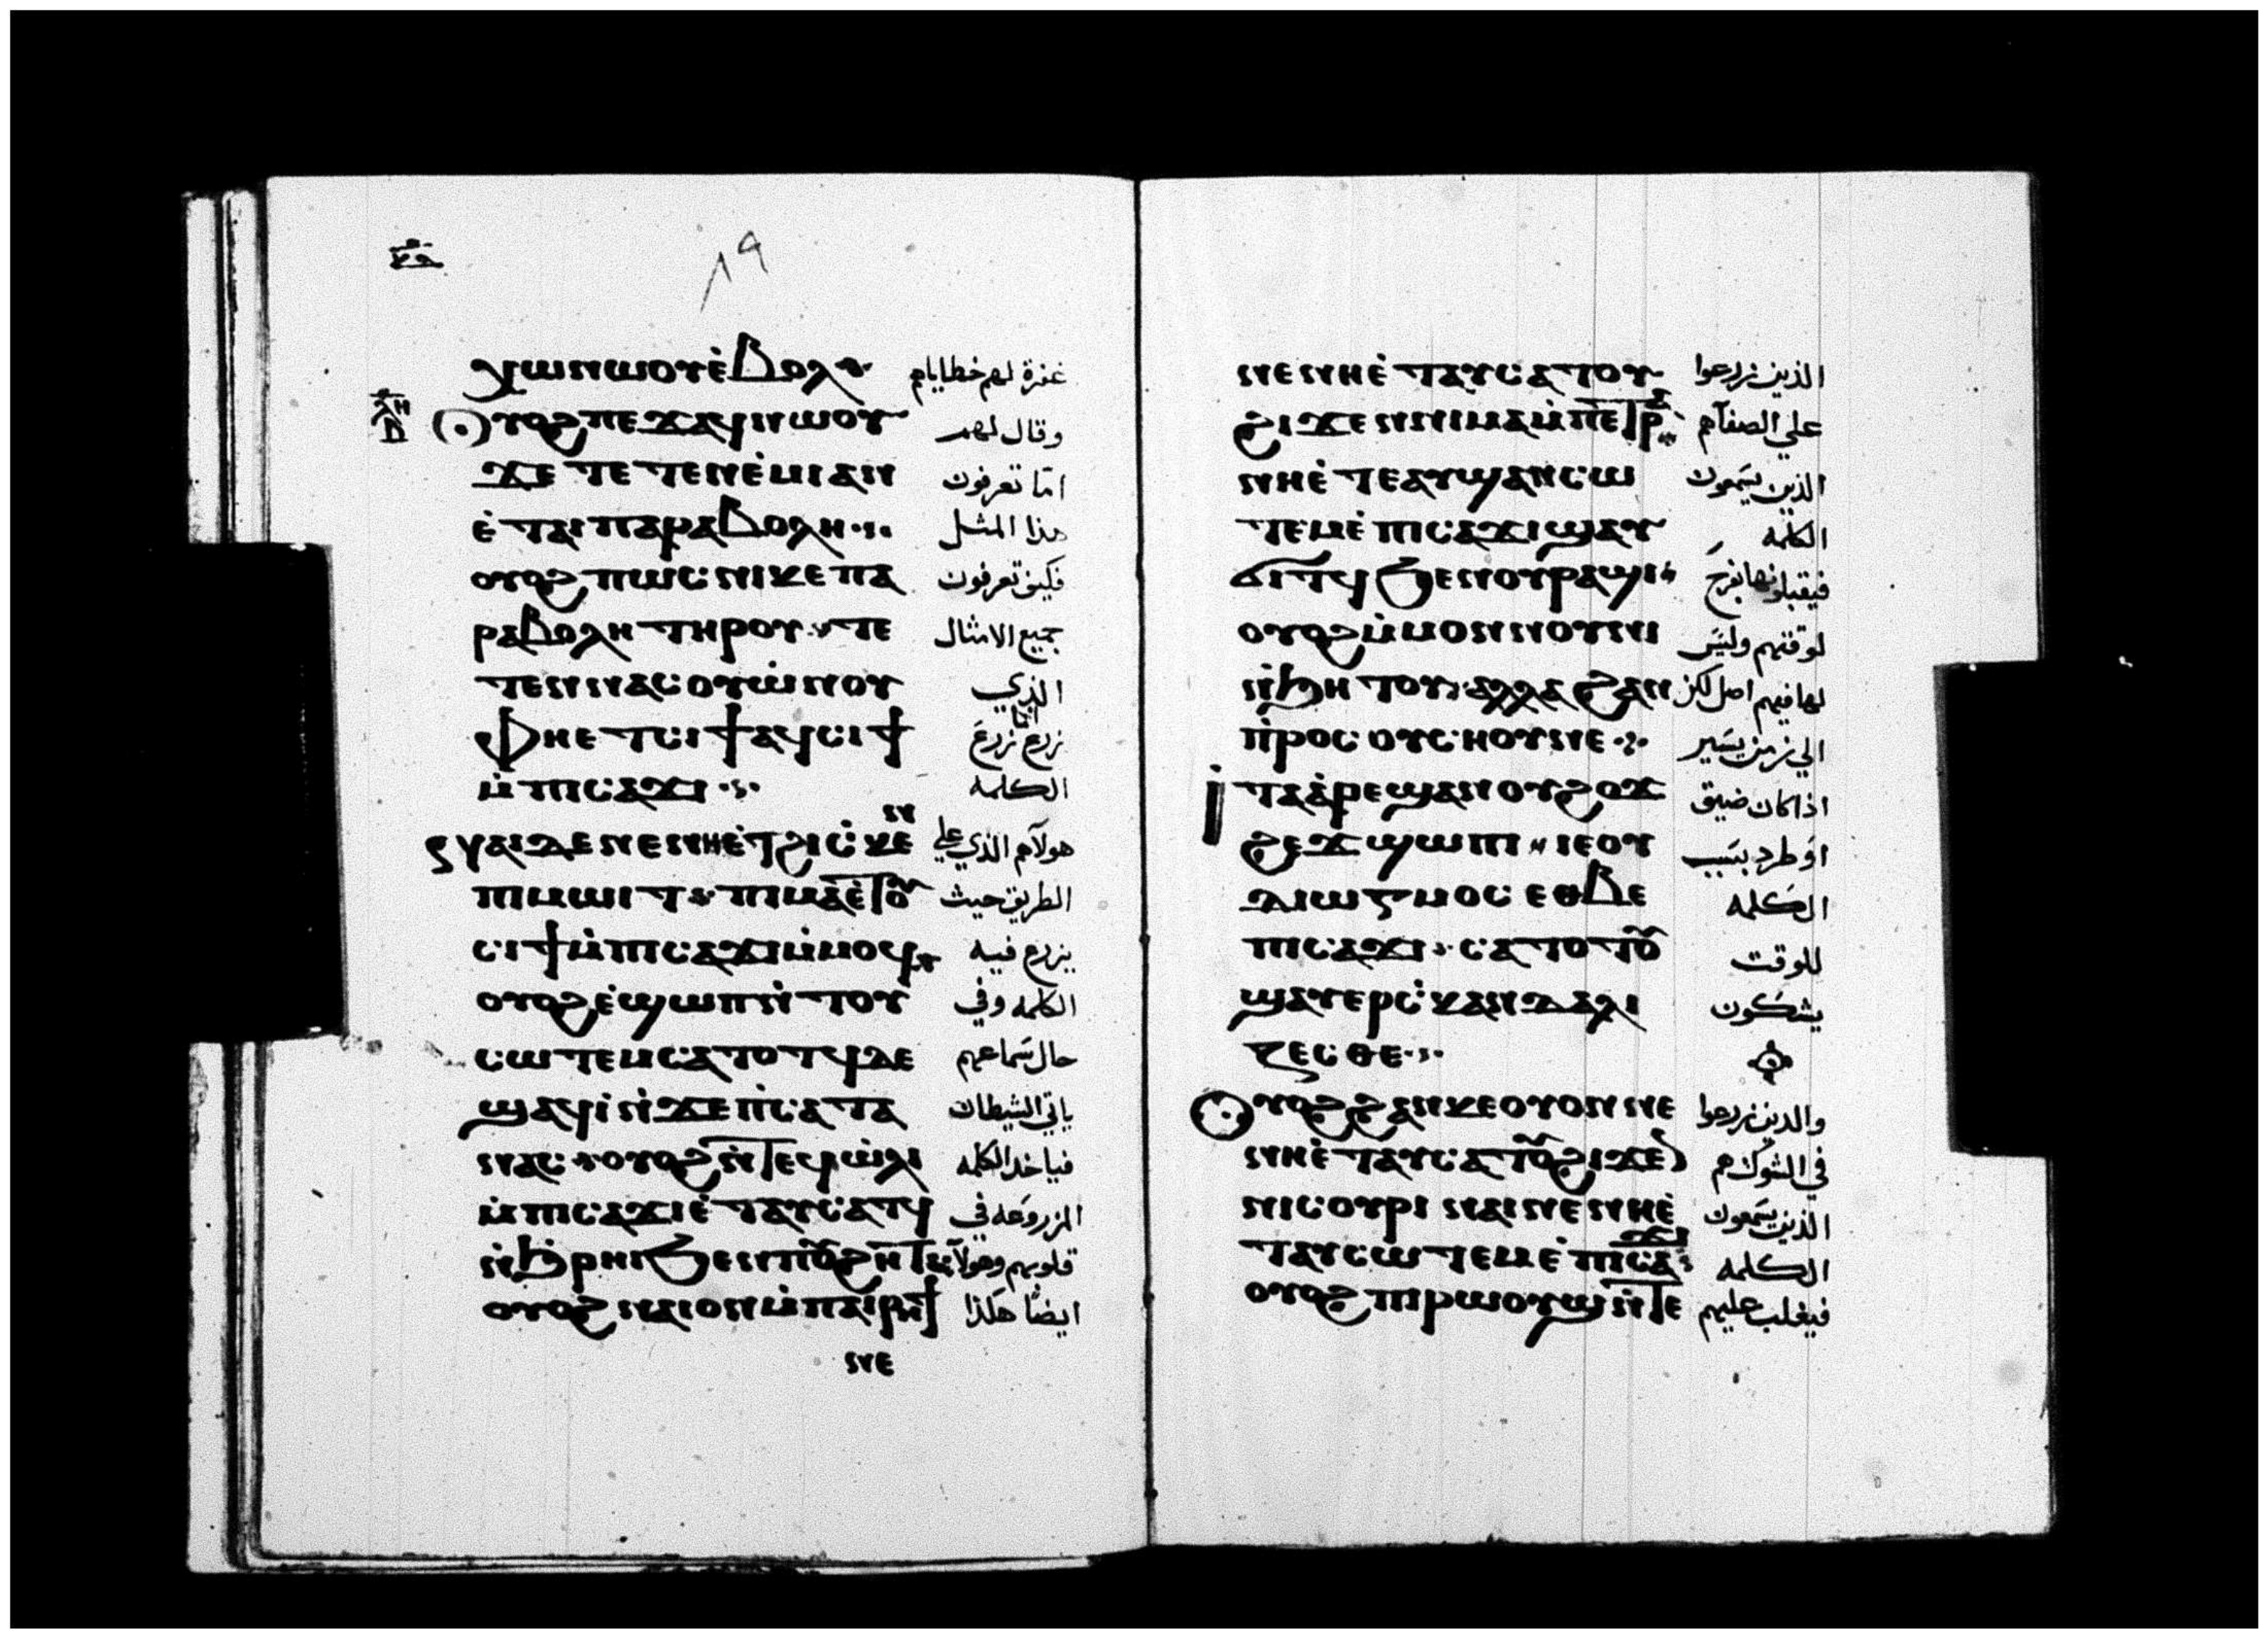 ٨٩
ⲭⲱⲛⲱⲟⲩⲉ̀ⲃⲟⲗ غفرة لهم خطاياهم
ⲗⲏ
ⲟⲩⲟϩⲡⲉϫⲁϥⲛⲱⲟⲩ وقال لهم
ϫⲉⲧⲉⲧⲉⲛⲉ̀ⲙⲓⲁⲛ امّا تعرفون
ⲉ̀ⲧⲁⲓⲡⲁⲣⲁⲃⲟⲗⲏ هذا المثل
ⲟⲩⲟϩⲡⲱⲥⲛⲓⲕⲉⲡⲁ فكيف تعرفون
ⲣⲁⲃⲟⲗⲏⲧⲏⲣⲟⲩⲧⲉ جميع الامثال
ⲧⲉⲛⲛⲁⲥⲟⲩⲱ̀ⲛⲟⲩ الذي
ⲫⲏⲉⲧⲥⲓϯⲁϥⲥⲓϯ زرع زرع
ⲙ̀ⲡⲓⲥⲁϫⲓ الكلمه
ⲛⲁⲓⲇⲉⲛⲉⲛⲏⲉ̀ⲧϩⲓⲥ̀ⲕⲉⲛ هولآهم الذي علي
ⲡⲓⲙⲱⲓⲧ ⲡⲓⲙⲁⲉ̀ⲧⲟⲩ الطريق حيث
ⲥⲓϯⲙ̀ⲡⲓⲥⲁϫⲓⲙ̀ⲙⲟϥ يزرع فيه
ⲟⲩⲟϩⲉ̀ϣⲱⲡⲛ̀ⲧⲟⲩ الكلمه وفي
ⲥⲱⲧⲉⲙⲥⲁⲧⲟⲧϥⲇⲉ حال سَماعهم
ϣⲁϥⲓ̀ⲛ̀ϫⲉⲡ̀ⲥⲁⲧⲁ ياتي الشيطان
ⲛⲁⲥ ⲟⲩⲟϩⲛ̀ⲧⲉϥⲱ̀ⲗⲓ فياخد الكلمه
ⲙ̀ⲡⲓⲥⲁϫⲓⲉ̀ⲧⲁⲩⲥⲁⲧϥ المزروعه في
ⲛ̀ϧ̀ⲣⲏⲓϧⲉⲛⲡⲟⲩϩⲏⲧ قلوبهم وهولآ
ⲟⲩⲟϩⲛⲁⲓⲟⲛⲙ̀ⲡⲁⲓⲣⲏϯ ايضًا هكذا
ⲛⲉ
ⲛⲉⲛⲏⲉ̀ⲧⲁⲩⲥⲁⲧⲟⲩ الذين زرعوا
ϩⲓϫⲉⲛⲛⲓⲙⲁⲙ̀ⲡⲉⲧⲣⲁ علي الصفآهم
ⲛⲏⲉ̀ⲧⲉⲁⲩϣⲁⲛⲥⲱ الذين يسَمعون
ⲧⲉⲙⲉ̀ⲡⲓⲥⲁϫⲓϣⲁⲩ الكلمه
ϭⲓⲧϥϧⲉⲛⲟⲩⲣⲁϣⲓ فيقبلونها بفرَح
ⲟⲩⲟϩⲙ̀ⲙⲟⲛⲛⲟⲩⲛⲓ لوقتهم وليسَ
ⲛ̀ϧⲏⲧⲟⲩ ⲁⲗⲗⲁϩⲁⲛ لها فيهم اصل لكن
ⲡ̀ⲣⲟⲥⲟⲩⲥⲏⲟⲩⲛⲉ الي زمن يسَير
ⲓⲧⲁⲁ̀ⲣⲉϣⲁⲛⲟⲩϩⲟϫ اذا كان ضيق
ϩⲉϫϣⲱⲡⲓ ⲓⲉⲟⲩ اوَ طرد بسَبب
ⲇⲓⲱⲅⲙⲟⲥⲉⲑⲃⲉ الكلمه
ⲡⲓⲥⲁϫⲓ ⲥⲁⲧⲟⲧⲟⲩ للوقت
ϣⲁⲩⲉⲣⲥ̀ⲕⲁⲛⲇⲁⲗⲓ يشكون
ⲍⲉⲥⲑⲉ
ⲟⲩⲟϩϩⲁⲛⲕⲉⲟⲩⲟⲛⲛⲉ والدين زرعوا
ⲛⲏⲉ̀ⲧⲁⲩⲥⲁⲧⲟⲩϩⲓϫⲉⲛ في الشوك هم
ⲛⲓⲥⲟⲩⲣⲓ ⲛⲁⲓⲛⲉⲛⲏⲉ̀ الذين يسَمعون
ⲧⲁⲩⲥⲱⲧⲉⲙⲉ̀ⲡⲓⲥⲁϫⲓ الكلمه
ⲟⲩⲟϩⲡⲓⲣⲱⲟⲩϣⲛ̀ⲧⲉ فيغلب عليهم